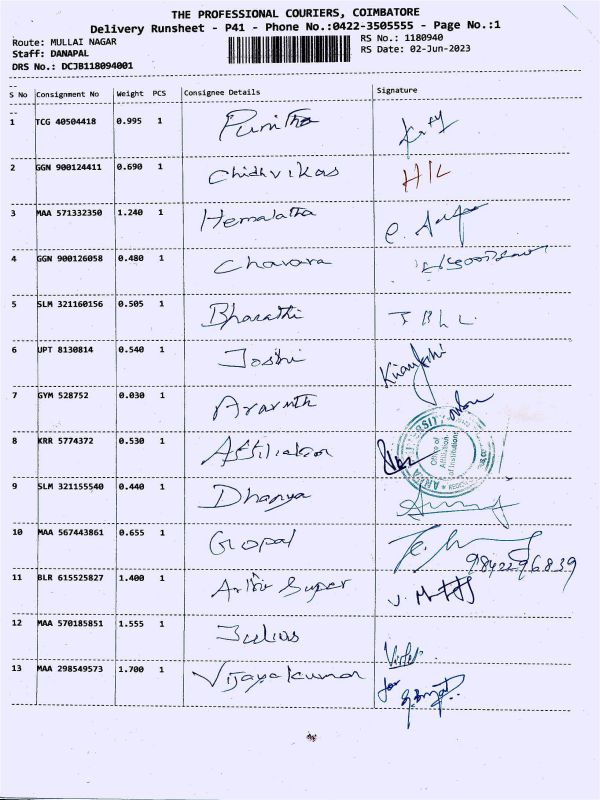 THE PROFESSIONAL COURIERS, COIMBATORE
Delivery Runsheet - P41 - Phone No.:0422-3505555 - Page No.:1
Route: MULLAI NAGAR RS No.: 1180940
Staff: DANAPAL RS Date: 02-Jun-2023
DRS No.: DCJB118094001
S No Consignment No Weight PCS Consignee Details Signature
1 TCG 40504418 0.995 1 Punitha
2 GGN 900124411 0.690 1 Chidhvikas
3 MAA 571332350 1.240 1 Hemalatha
4 GGN 900126058 0.480 1 Chavara
5 SLM 321160156 0.505 1 Bharathi
6 UPT 8130814 0.540 1 Joshi
7 GYM 528752 0.030 1 Aravinth
8 KRR 5774372 0.530 1 Affiliation
Office of
Affiliation
of Institutions
9 SLM 321155540 0.440 1 Dhanya
10 MAA 567443861 0.655 1 Gopal
9842296839
11 BLR 615525827 1.400 1 Super
12 MAA 570185851 1.555 1 Julius
13 MAA 298549573 1.700 1 Vijayakumar